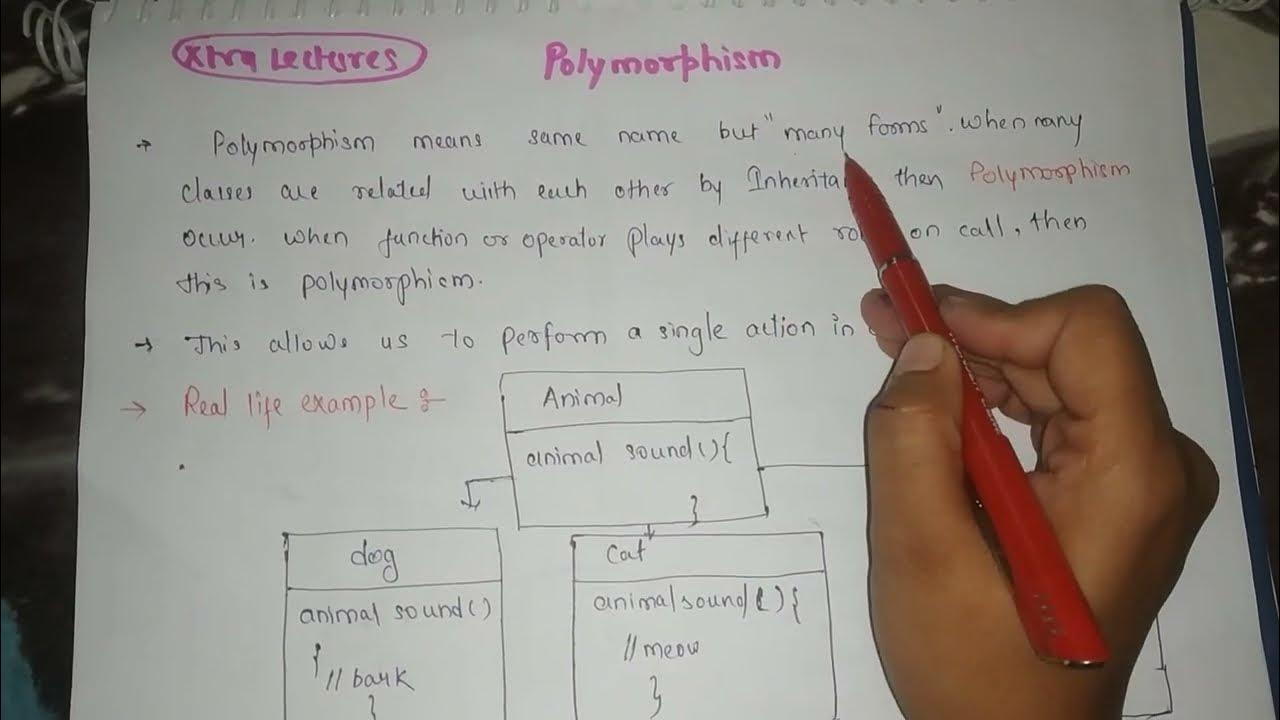 Xtra Lectures
Polymorphism
→ Polymorphism means same name but "many forms". when many
classes are related with each other by then Polymorphism
occur. when function or operator plays different on call, then
this is polymorphism.
→ This allows us to perform a single action in
→ Real life example :-
Animal
animal sound(){
}
dog
animal sound()
{
//bark
}
Cat
animalsound(){
//meow
}